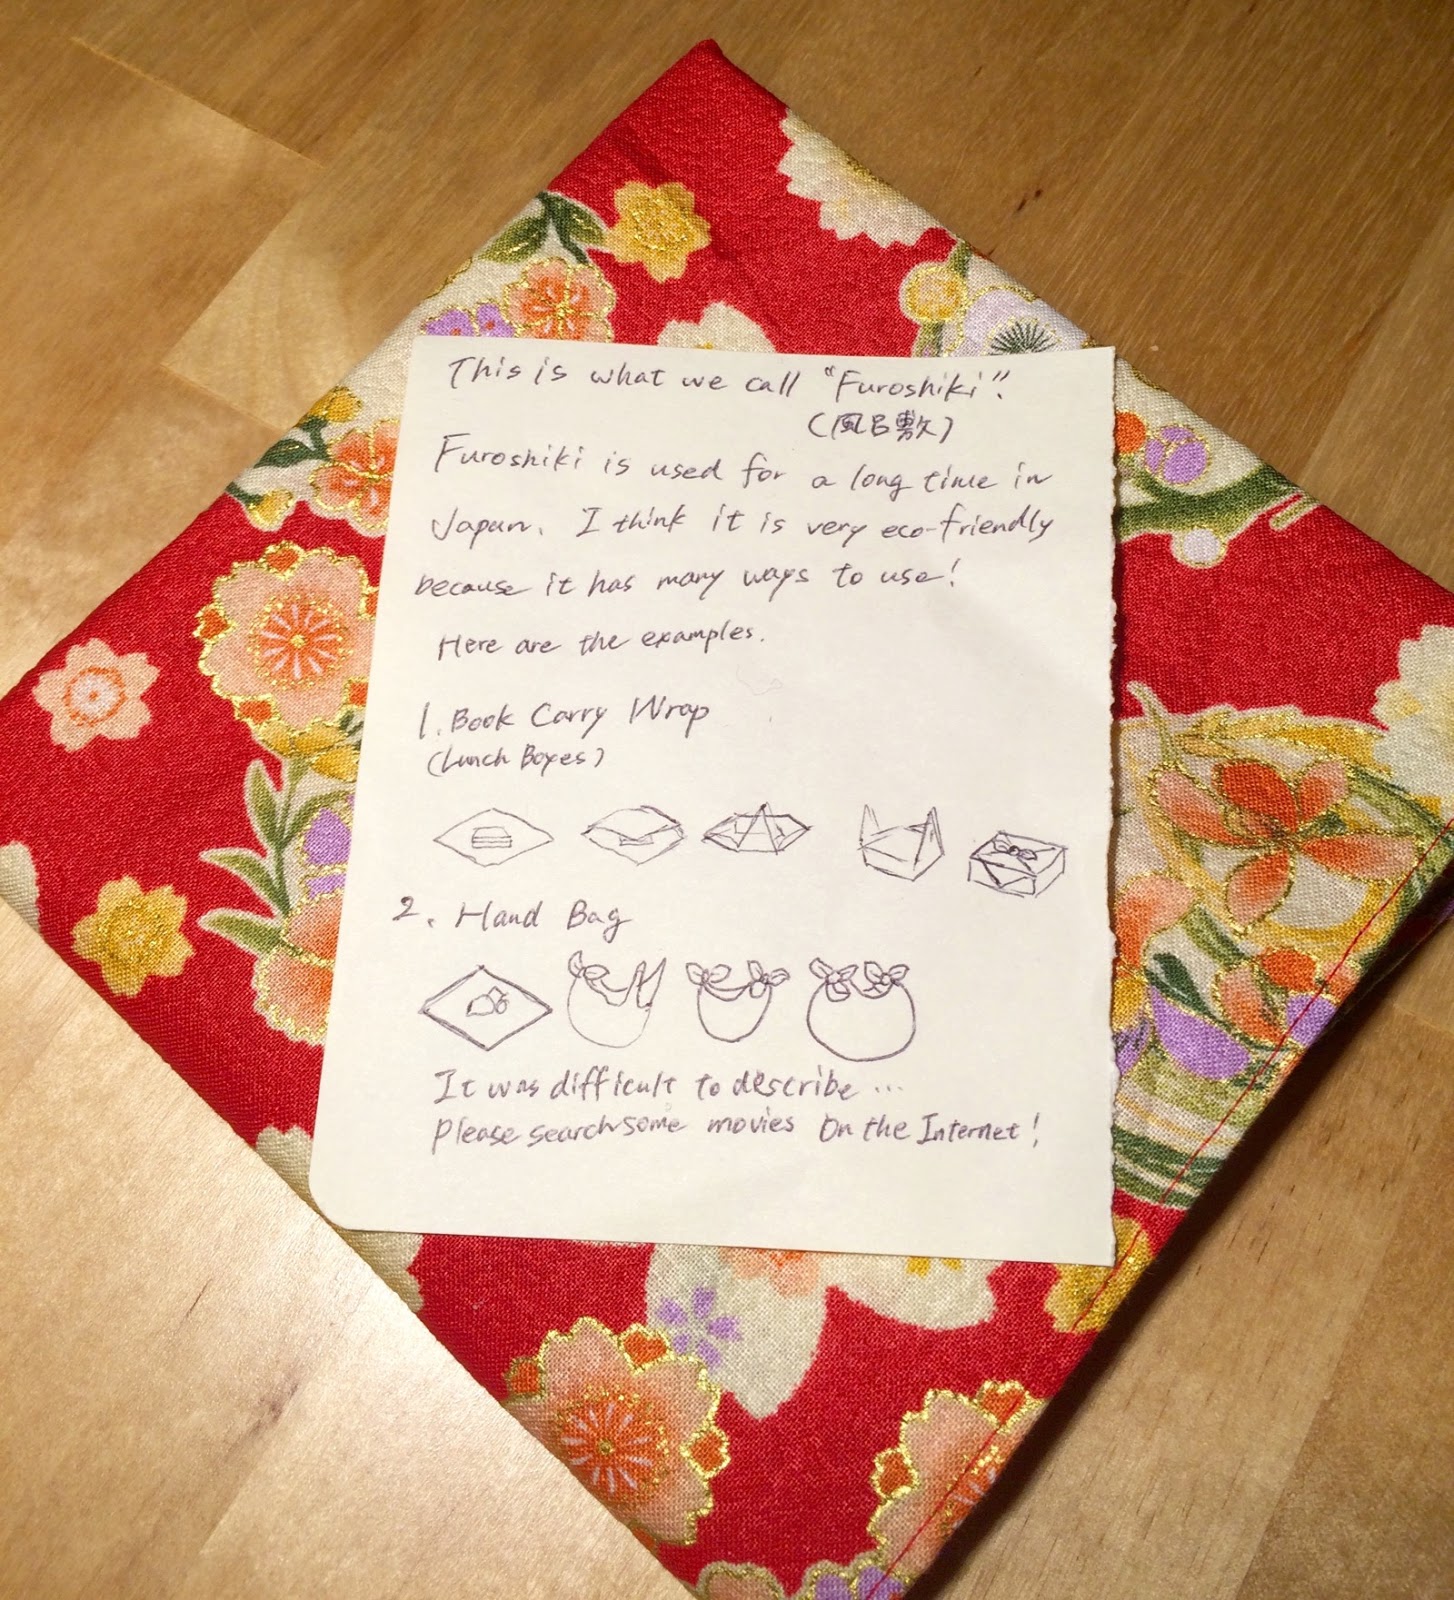 This is what we call "Furoshiki".
(風呂敷)
Furoshiki is used for a long time in
Japan. I think it is very eco-friendly
because it has many ways to use!
Here are the examples.
1. Book Carry Wrap
(Lunch Boxes)
2. Hand Bag
It was difficult to describe...
Please search some movies on the Internet!